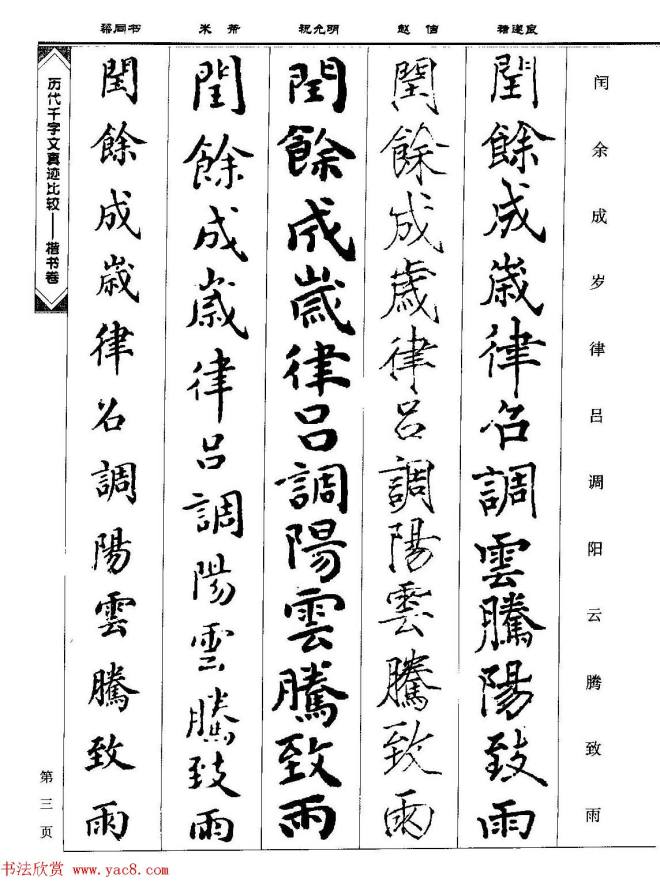 闰余成岁律吕调阳云腾致雨
褚遂良
閏餘成歲律召調雲騰陽致雨
赵佶
閏餘成歲律呂調陽雲騰致雨
祝允明
閏餘成歲律呂調陽雲騰致雨
米芾
閏餘成歲律呂調陽雲騰致雨
梁同书
閏餘成歲律召調陽雲騰致雨
历代千字文真迹比较——楷书卷
第三页
书法欣赏 www.yac8.com